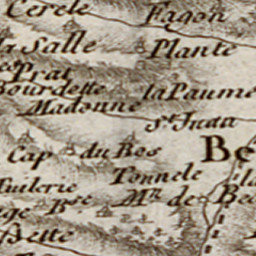 Cercle Fagon
la Salle Plante
Prat
Bourdette la Paume
Madonne
St. Justa
Cap du Bos Be
Tuilerie Tonnele
Bse. Mn. de Be